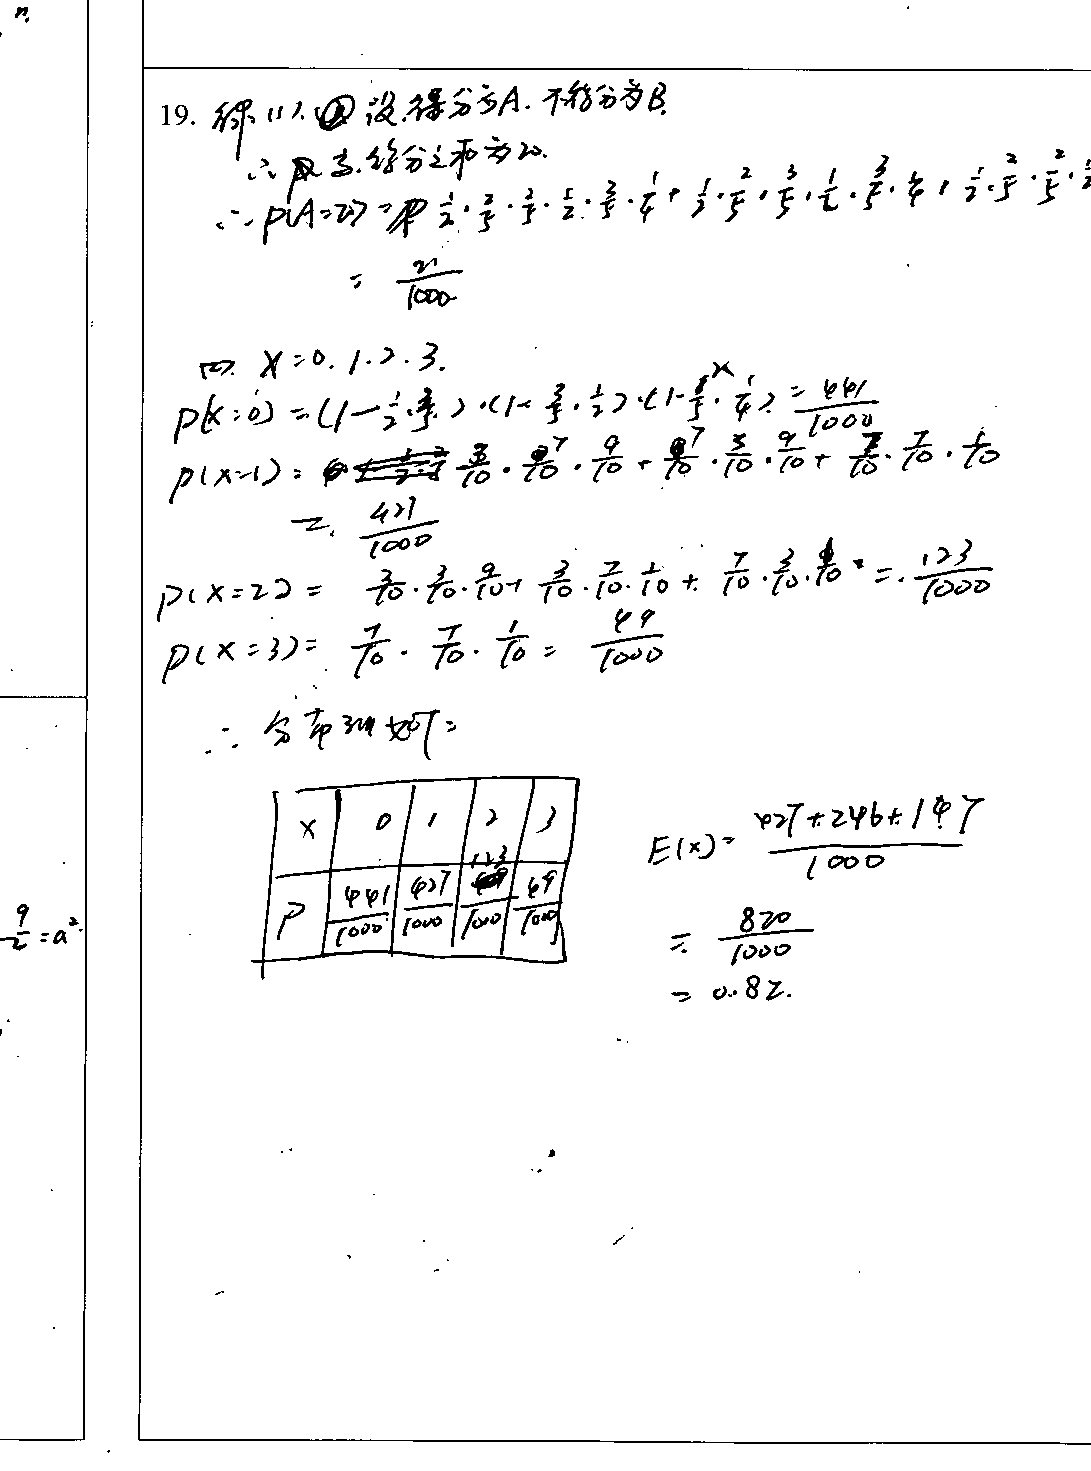 n.
19. 解: (1). ① 设. 得分为A. 不得分为B.
∴ 两支. 得分之和为20.
= 21/1000
(2). X=0. 1. 2. 3.
P(X=0) = (1-1/2·3/5)·(1-3/5·1/2)·(1-2/5·1/4) = 441/1000
P(X=1) = 3/10·7/10·9/10 + 7/10·3/10·9/10 + 7/10·7/10·1/10
= 427/1000
P(X=2) = 3/10·3/10·9/10 + 3/10·7/10·1/10 + 7/10·3/10·1/10 = 123/1000
P(X=3) = 7/10·7/10·1/10 = 49/1000
∴ 分布列如下:
X 0 1 2 3
P 441/1000 427/1000 123/1000 49/1000
E(X) = 427+246+147/1000
= 820/1000
= 0.82.
9/2 = a²